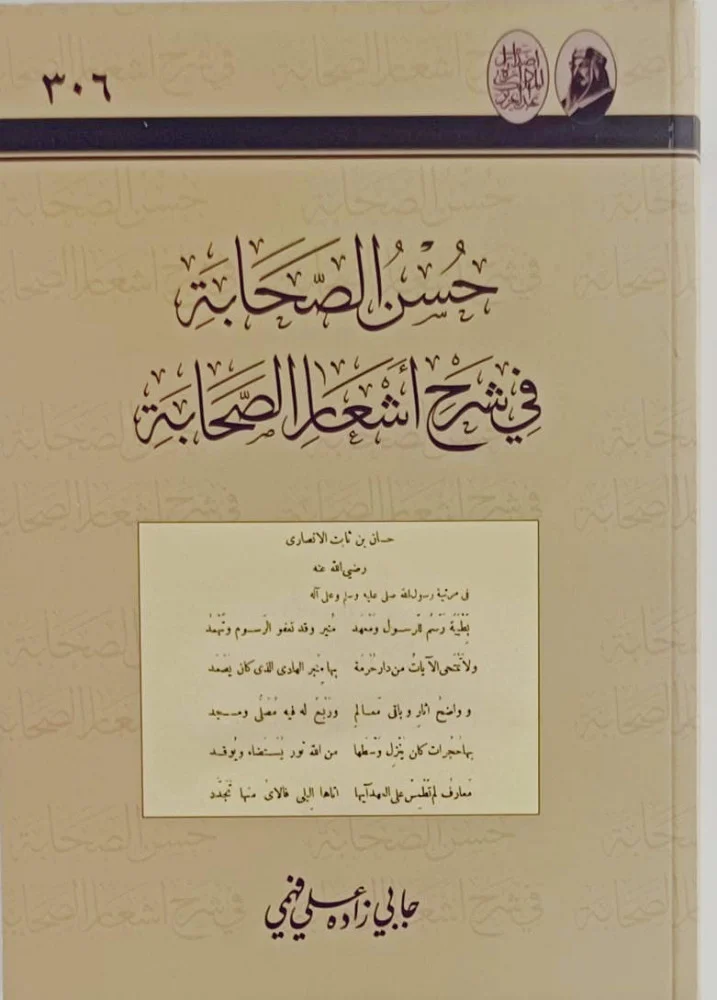 ٣٠٦
إصدارات
دارة الملك
عبدالعزيز
حُسْنُ الصَّحَابَةِ
فِي شَرْحِ أَشْعَارِ الصَّحَابَةِ
حسان بن ثابت الانصارى
رضي الله عنه
فى مرثية رسول الله صلى عليه وسلم وعلى آله
بِطَيْبَةَ رَسْمٌ للرسـول ومَعْهَد مُنير وقد تعفو الرّسـوم وتَهْمَدُ
ولا تَنْمَحى الآياتُ من دار حُرْمَة بها مِنْبر الهادى الذى كان يَصْعَد
و واضحُ اثارٍ و باقى مَعـالمٍ ورَبْعٌ له فيه مُصَلًّى ومسـجد
بها حُجْرات كان يَنْزِل وَسْطَها من الله نور يُسْتَضاء ويُوقَـد
مَعارفُ لم تَطْمِسْ على العهد آيها اتاها البِلى فالاىُ منها تَجَدَّد
جابي زاده علي فهمي